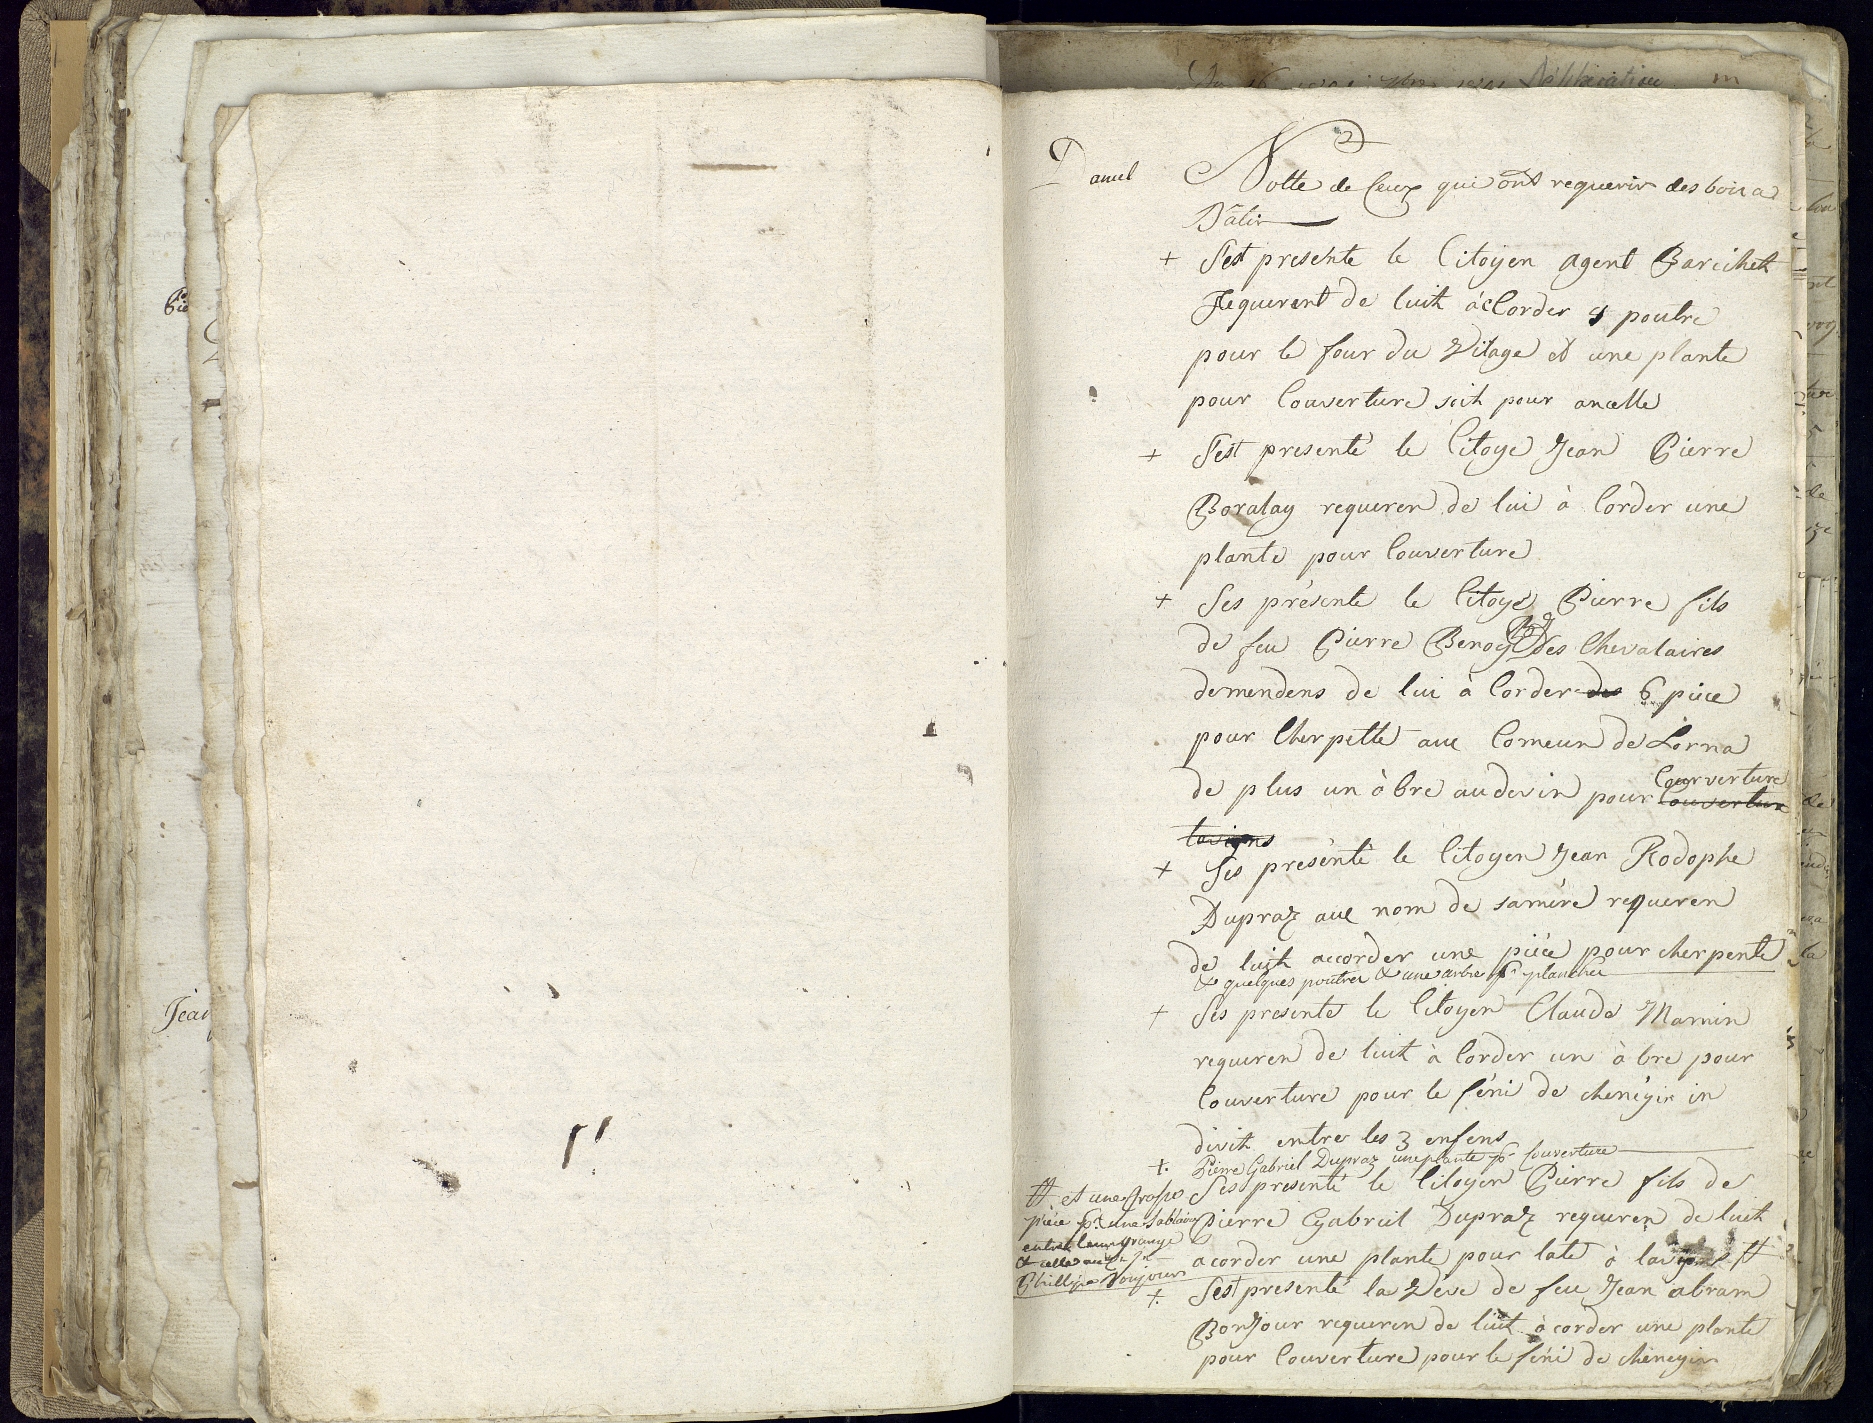 Daniel
Notte de Ceux qui ont requerir des bois a
Bâtir
+ S'est presenté le Citoyen agent Barichet
Requerent de luit àccorder 8 poutre
pour le four du Vilage et une plante
pour Couverture soit pour ancelle
+ S'est presenté le Citoye Jean Pierre
Boralay requeren de lui à Corder une
plante pour Couverture
+ Ses présenté le Citoye Pierre fils
de feu Pierre Benoy des Chevalaires
demendens de lui à Corder des 6 piece
pour Cherpette aux Comeun de Lorna
de plus un àbre au devin pour Couverture
Couverture
tavigns
+ Ses présenté le Citoyen Jean Rodophe
Dupraz aue nom de samére requeren
de luit accorder une piéce pour cherpente
& quelques poutres & une arbre pr plancher
+ Ses presenté le Citoyen Claude Mamin
requeren de luit à Corder un àbre pour
Couverture pour le féni de chenégir in
divit entre les 3 enfens
+. Pierre Gabriel Dupraz une plante pr Couverture
Ses presenté le Citoyen Pierre fils de
Pierre Gabriel Dupraz requeren de luit
acorder une plante pour late à #
# et une grosse
piéce pr une sabliére
entre leur grange
& celle aux
Phillipe Bonjour
+. S'est presenté la Veve de feu Jean abram
Bonjour requeren de luit àcorder une plante
pour Couverture pour le féni de chenegir
Jean